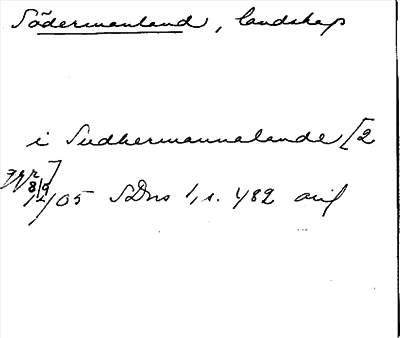 Södermanland, landskap
i Sudhermannalande [2
ggr]
8/9 1405 SDns 1, s. 482 avs